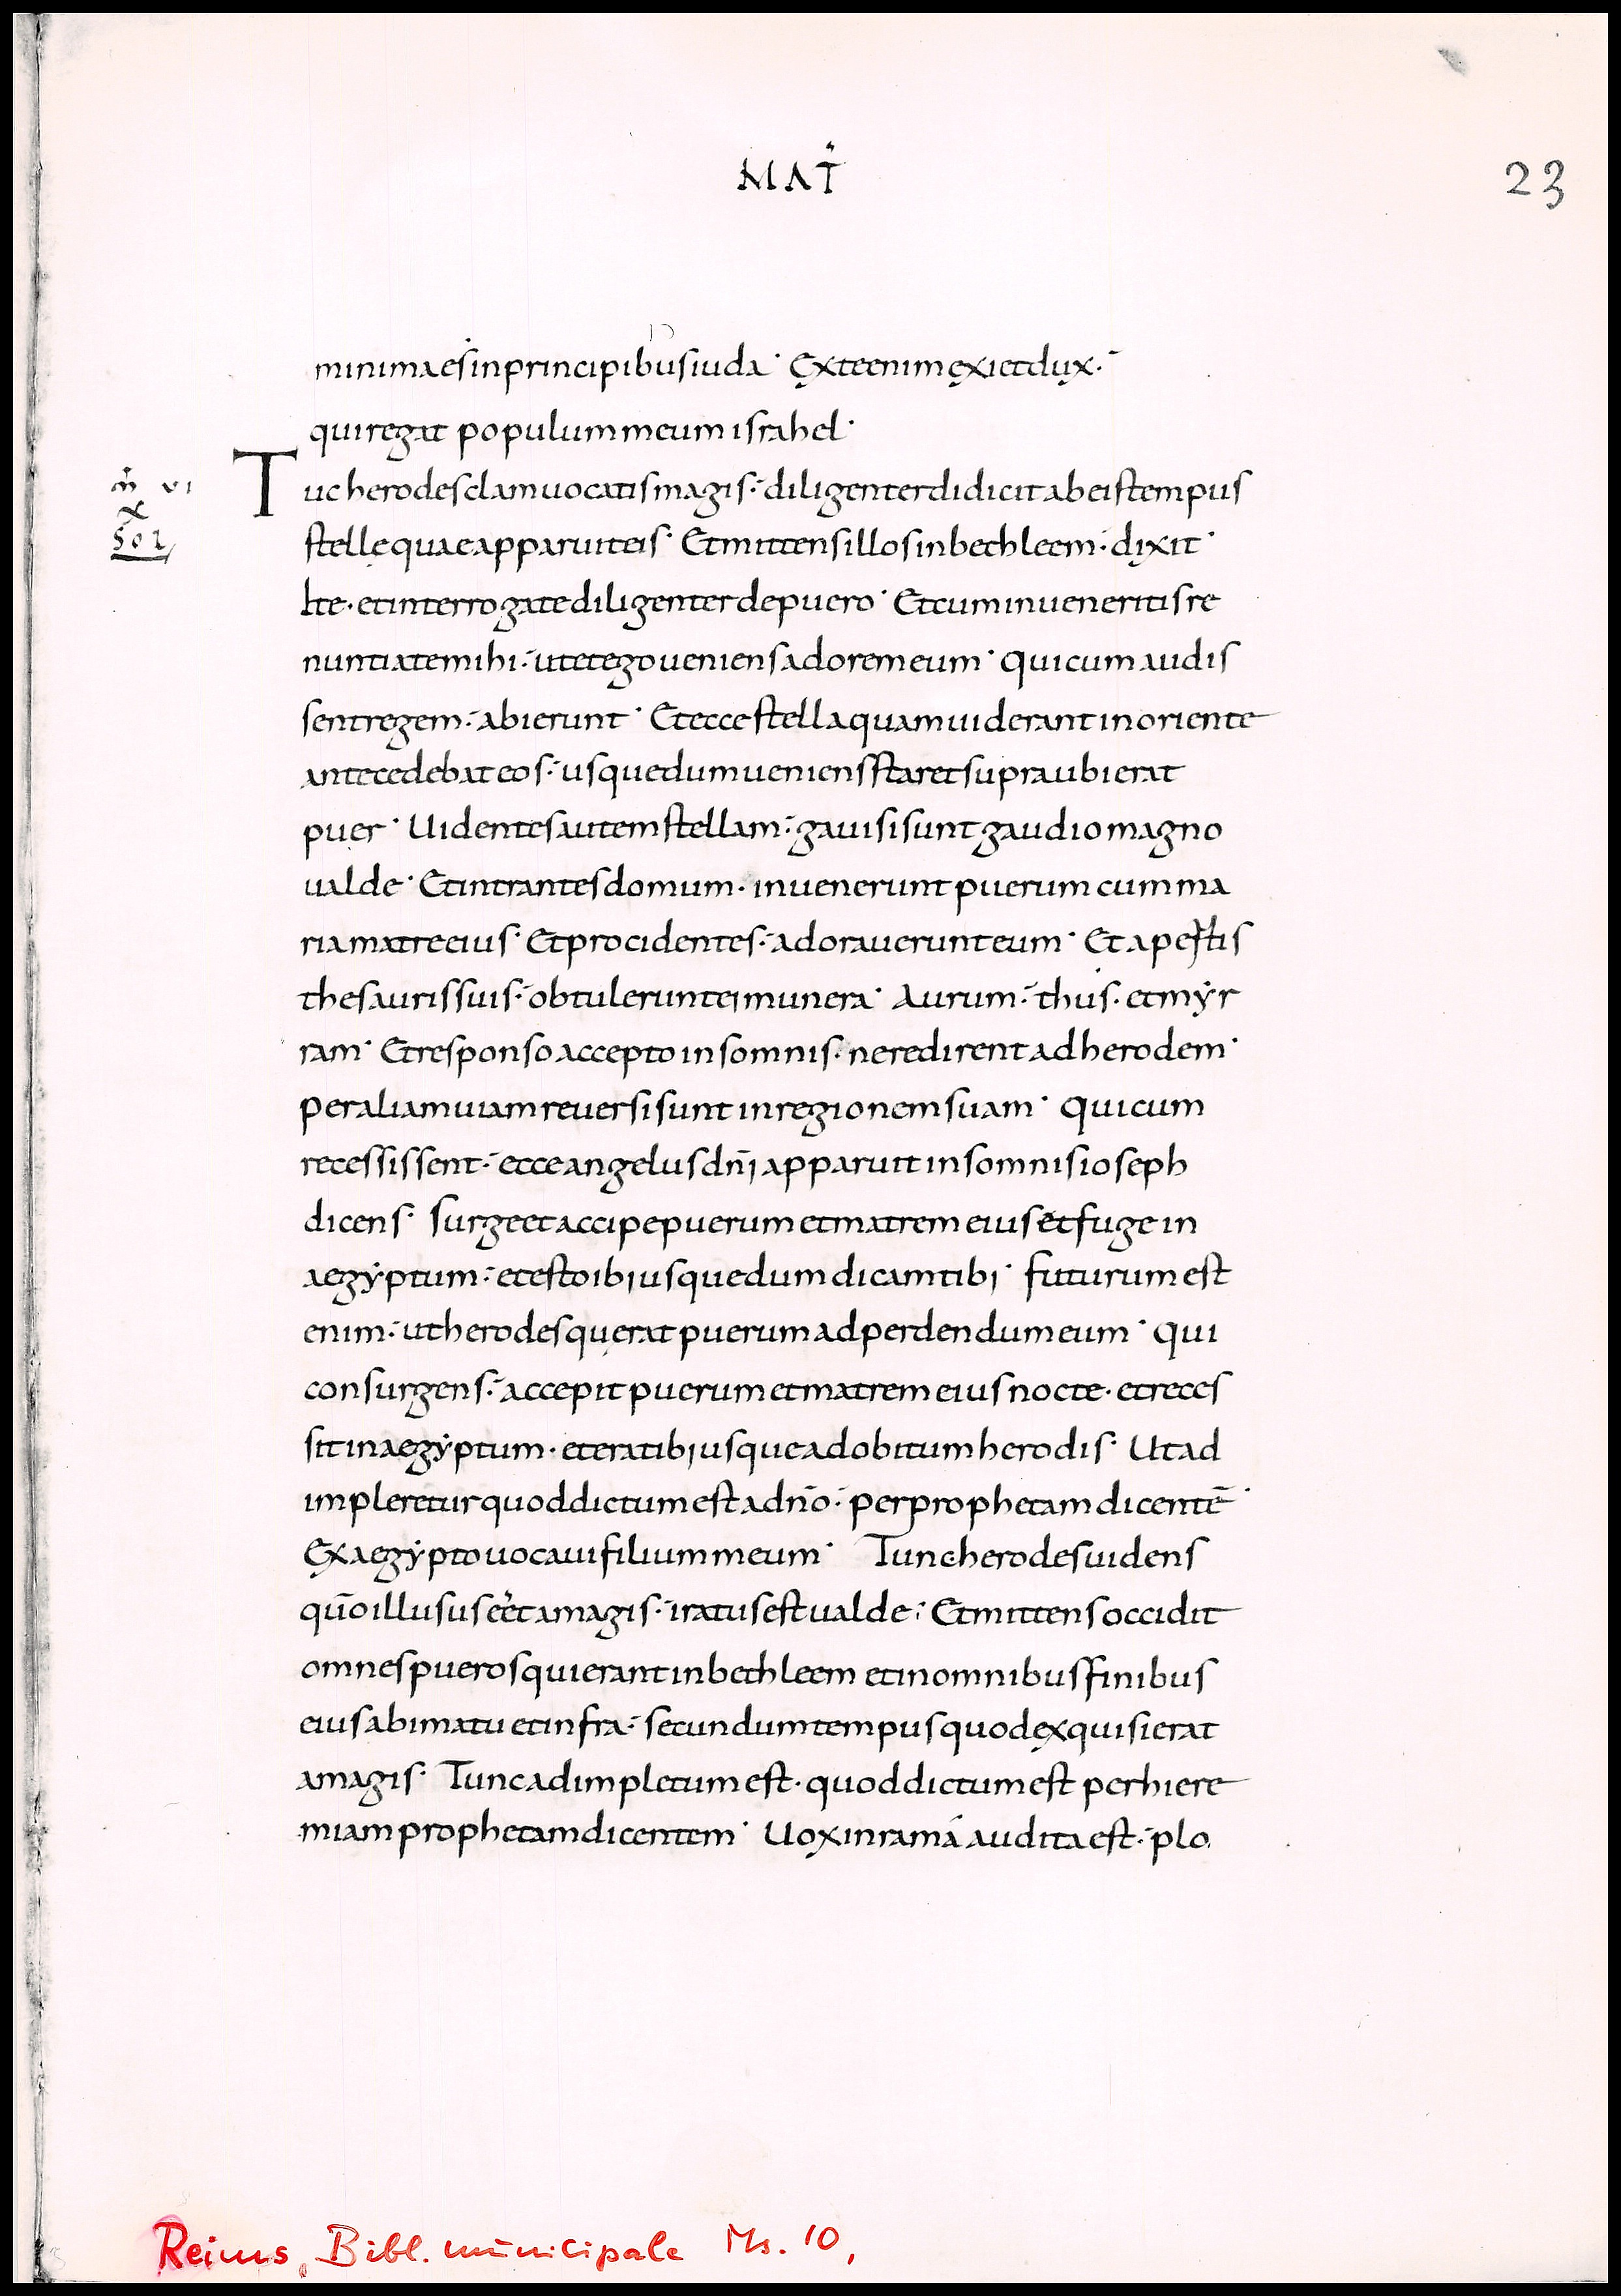 MAT̄
23
minima es in principibus iuda· Ex te enim exiet dux·
qui regat populum meum israhel·
m̄ vi
x
502
Tuc herodes clam uocatis magis· diligenter didicit ab eis tempus
stellę quae apparuit eis· Et mittens illos in bethleem· dixit·
Ite· et interrogate diligenter de puero· Et cum inueneritis re
nuntiate mihi· ut et ego ueniens adorem eum· Qui cum audis
sent regem· abierunt· Et ecce stella quam uiderant in oriente
antecedebat eos· usque dum ueniens staret supra ubi erat
puer· Uidentes autem stellam· gauisi sunt gaudio magno
ualde· Et intrantes domum· inuenerunt puerum cum ma
ria matre eius· Et procidentes· adorauerunt eum· Et apertis
thesauris suis· obtulerunt ei munera· Aurum· thus· et mẏr
ram· Et responso accepto in somnis· ne redirent ad herodem·
per aliam uiam reuersi sunt in regionem suam· Qui cum
recessissent· ecce angelus dn̄i apparuit in somnis ioseph
dicens· Surge et accipe puerum et matrem eius et fuge in
aegẏptum· et esto ibi usque dum dicam tibi· futurum est
enim· ut herodes quęrat puerum ad perdendum eum· Qui
consurgens· accepit puerum et matrem eius nocte· et reces
sit in aegẏptum· et erat ibi usque ad obitum herodis· Ut ad
impleretur quod dictum est a dn̄o· per prophetam dicentē·
Ex aegẏpto uocaui filium meum· Tunc herodes uidens
qūo illusus eēt a magis· iratus est ualde· Et mittens occidit
omnes pueros qui erant in bethleem et in omnibus finibus
eius a bimatu et infra· secundum tempus quod exquisierat
a magis· Tunc adimpletum est· quod dictum est per hiere
miam prophetam dicentem· Uox in rama audita est· plo
Reims, Bibl. municipale Ms. 10,